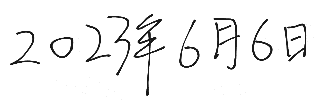 2023年6月6日